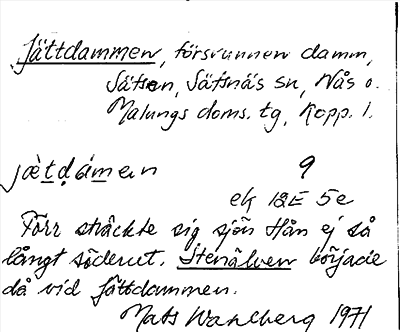 Jättdammen, försvunnen damm,
Sätsen, Säfsnäs sn, Nås o.
Malungs doms. tg, Kopp. l.
jæ̀tdámen 9
ek 12E 5e
Förr sträckte sig sjön Hån ej så
långt söderut. Stenälven började
då vid Jättdammen.
Mats Wahlberg 1971